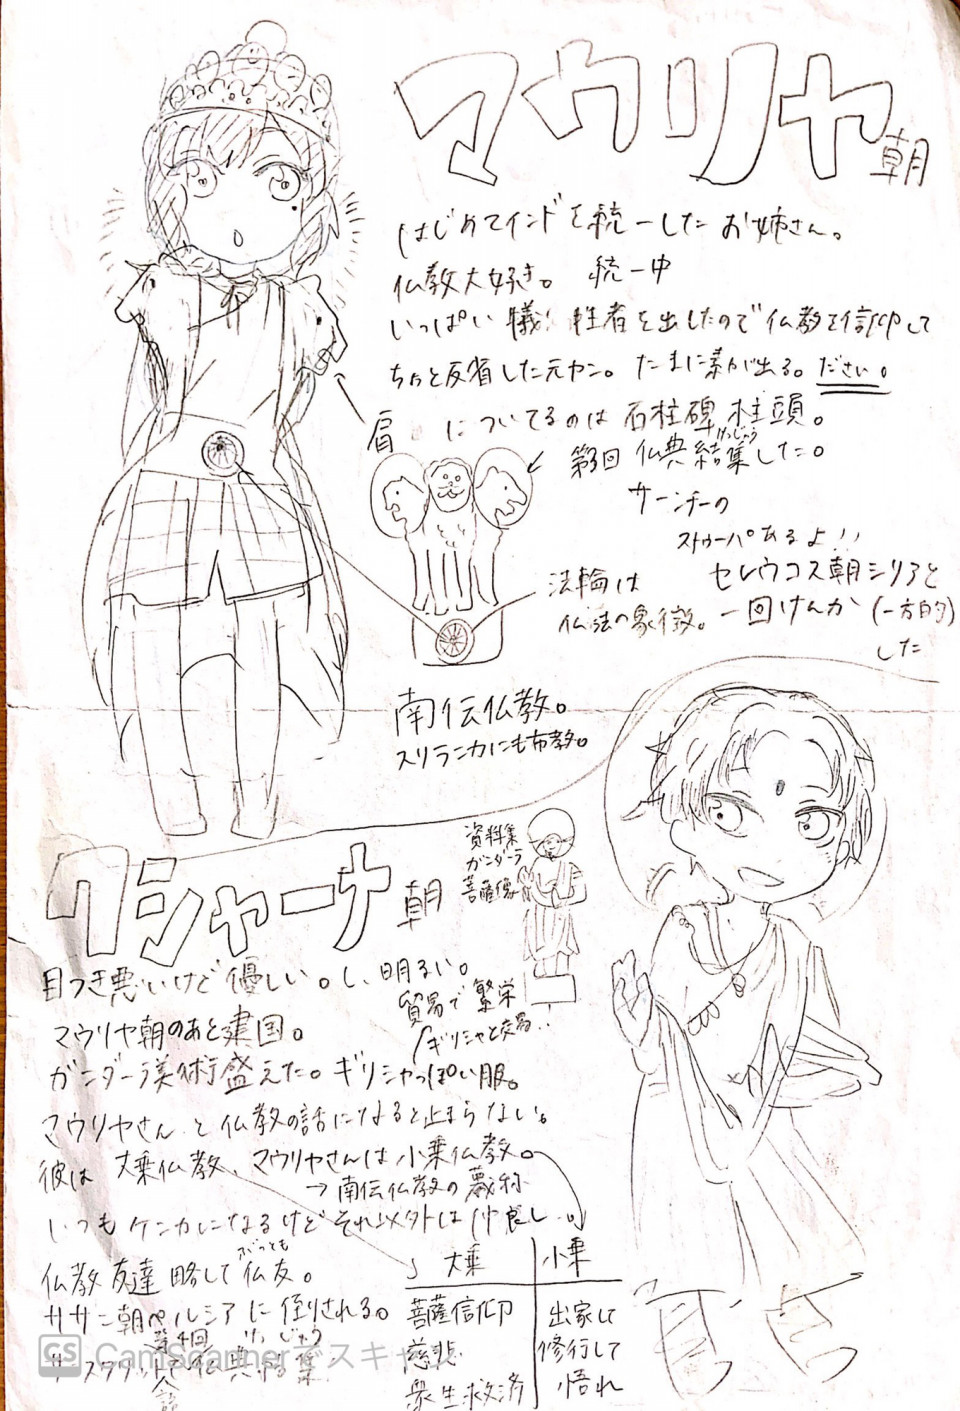 マウリヤ朝
はじめてインドを統一したお姉さん。
仏教大好き。 統一中
いっぱい犠牲者を出したので仏教を信仰して
ちょっと反省した元ヤン。たまに素が出る。ださい。
肩についてるのは石柱碑 柱頭。
第3回 仏典結集した。
けつじゅう
サーンチーの
ストゥーパあるよ!!
セレウコス朝シリアと
一回けんか(一方的)
した
法輪は
仏法の象徴。
南伝仏教。
スリランカにも布教。
クシャーナ朝
資料集
ガンダーラ
菩薩像
目つき悪いけど優しい。し、明るい。
貿易で繁栄
ギリシャと交易!!
マウリヤ朝のあと建国。
ガンダーラ美術盛えた。ギリシャっぽい服。
マウリヤさんと仏教の話になると止まらない。
彼は大乗仏教、マウリヤさんは小乗仏教。
→南伝仏教の蔑称
いつもケンカになるけどそれ以外は仲良し。
ぶっとも
仏教友達略して仏友。
ササン朝ペルシアに倒される。
第4回 けつじゅう
仏典結集
大乗 小乗
菩薩信仰 出家して
慈悲 修行して
衆生救済 悟れ
CS CamScannerでスキャン